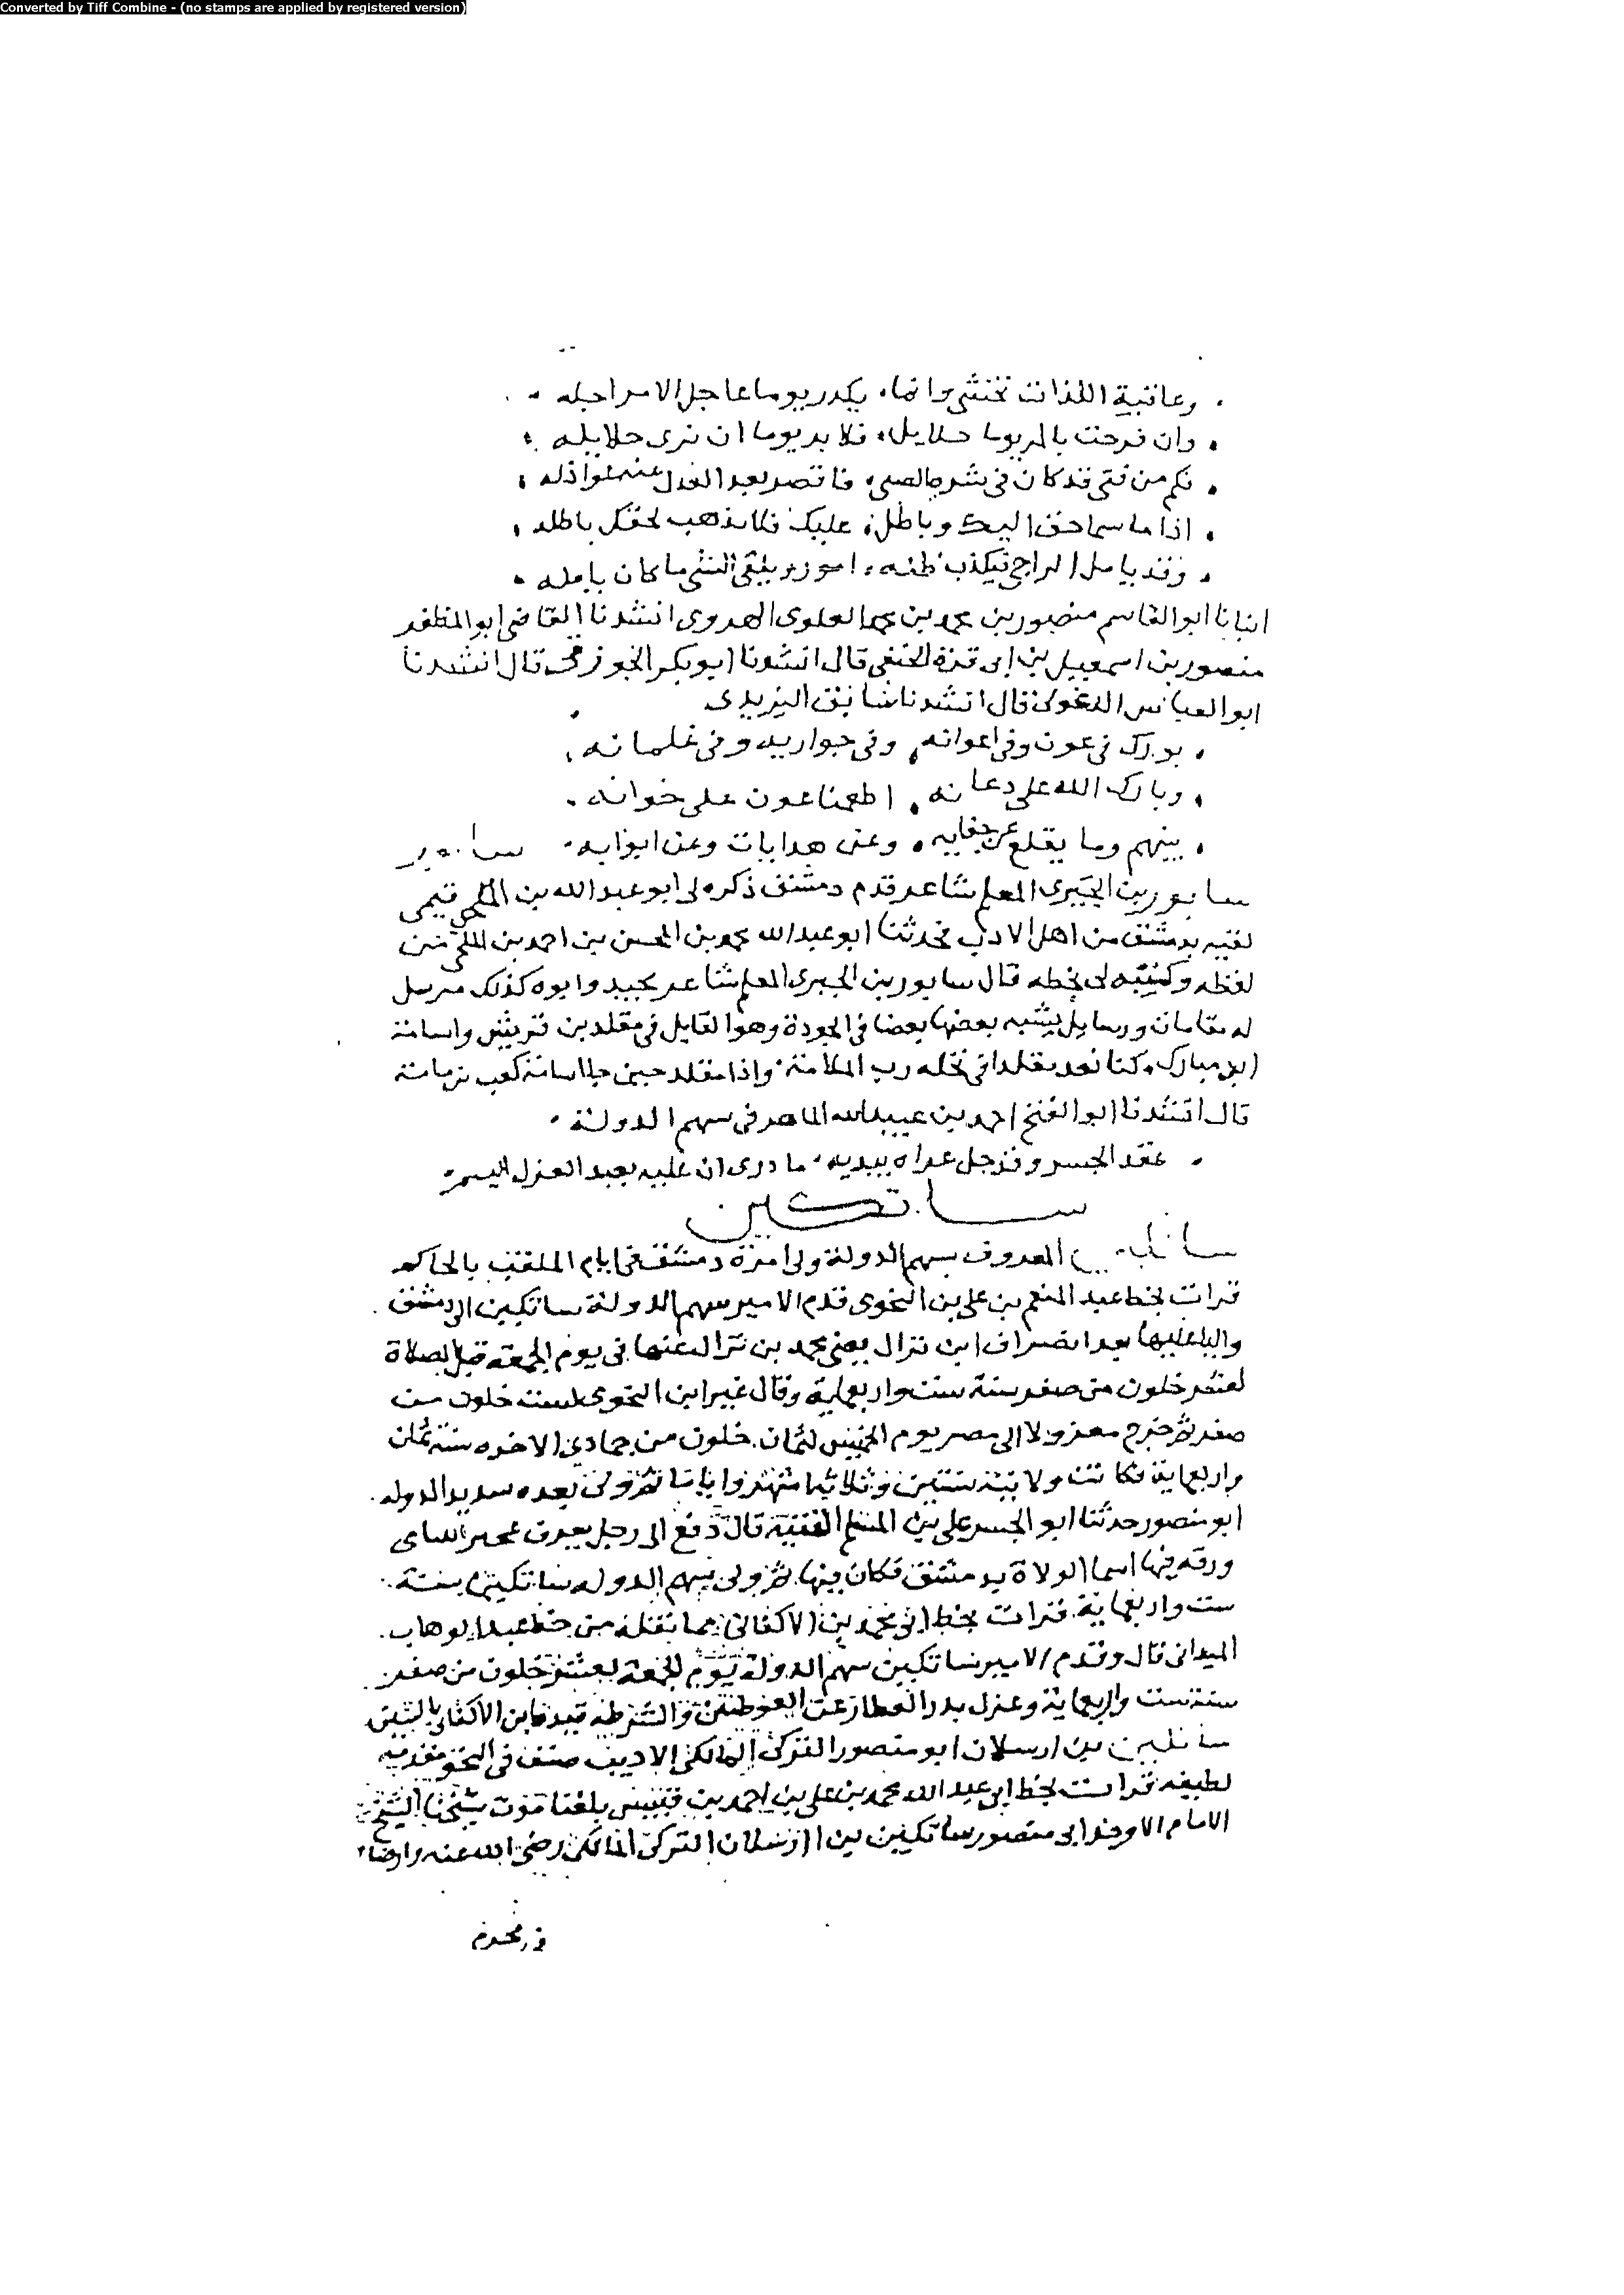 Converted by Tiff Combine - (no stamps are applied by registered version)
وعاقبة اللذات تخشى وانما يكدر يوما عاجل الامر اجله
وان فرحت بالمر يوما حلايله فلا بد يوما ان ترى حلايله
فكم من فتى قد كان فى شره الصبى فاقصر بعد العذل عنه عواذله
اذا ما سما حق اليك وباطل عليك فلا يذهب بحقك باطله
وقد يامل الراجى فيكذب ظنه امور ويلقى الشى ما كان يامله
انبانا ابو القاسم منصور بن محمد بن محمد العلوى الهروى انشدنا القاضى ابو المظفر
منصور بن اسمعيل بن ابى قرة الحنفى قال انشدنا ابو بكر الجوزقى قال انشدنا
ابو العباس الدغولى قال انشدنا سابق اليزيدى
بورك فى عون وفى اعوانه وفى جواريه وفى غلمانه
وبارك الله على دعانه اطعمنا عون على خوانه
وما يقلع عن جفايه وعن هدايات وعن ابوابه سابور
سابور بن الجبرى المعلم شاعر قدم دمشق ذكره لى ابو عبد الله بن الملحى فيمن
لقيه بدمشق من اهل الادب فحدثنا ابو عبد الله محمد بن المحسن بن احمد بن الملحى من
لفظه وكتبه لى بخطه قال سابور بن الجبرى المعلم شاعر مجيد وابوه كذلك مرسل
له مقامات ورسايل يشبه بعضها بعضا فى الجودة وهو القايل فى مقلد بن واسامة
ابن مبارك كنا نعد مقلدا فى بخله رب الملامة واذا مقلد حين جا اسامة كعب بن مامة
قال انشدنا ابو الفتح احمد بن عبيد الله الماهر فى سهم الدولة
عقد الجسر وقد حل عراه بيديه ما درى ان عليه يعبد العزل اليه
ساتكين
ساتكين المعروف بسهم الدولة ولى امرة دمشق فى ايام الملقب بالحاكم
قرات بخط عبد المنعم بن على بن النحوى قدم الامير سهم الدولة ساتكين الى دمشق
واليا عليها بعد انصراف ابن نزال يعنى محمد بن نزال عنها فى يوم الجمعة قبل الصلاة
لعشر خلون من صفر سنة ست واربعماية وقال غير ابن النحوى لست خلون من
صفر ثم خرج معزولا الى مصر يوم الخميس لثمان خلون من جمادى الاخره سنة ثمان
واربعماية فكانت ولايته سنتين وثلاثة اشهر واياما ثم ولى بعده سديد الدوله
ابو منصور حدثنا ابو الحسن على بن المسلم الفقيه قال دفع الى رجل يعرف
ورقه فيها اسما الولاة بدمشق فكان فيها ثم ولى سهم الدوله ساتكين سنة
ست واربعماية قرات بخط ابى محمد بن الاكفانى مما نقله من خط عبد الوهاب
الميدانى قال وقدم الامير ساتكين سهم الدولة يوم الجمعة لعشر خلون من صفر
سنة ست واربعماية وعزل بدر العطار عن الغوطتين والشرطه قيده ابن الاكفانى بالشين
ساتكين بن ارسلان ابو منصور التركى المالكى الاديب صنف فى النحو مقدمه
لطيفه قرات بخط ابى عبد الله محمد بن على بن احمد بن قبيس بلغنا موت شيخنا الشيخ
الامام الاوحد ابى منصور ساتكين بن ارسلان التركى المالكى رضى الله عنه وارضاه
فى محرم